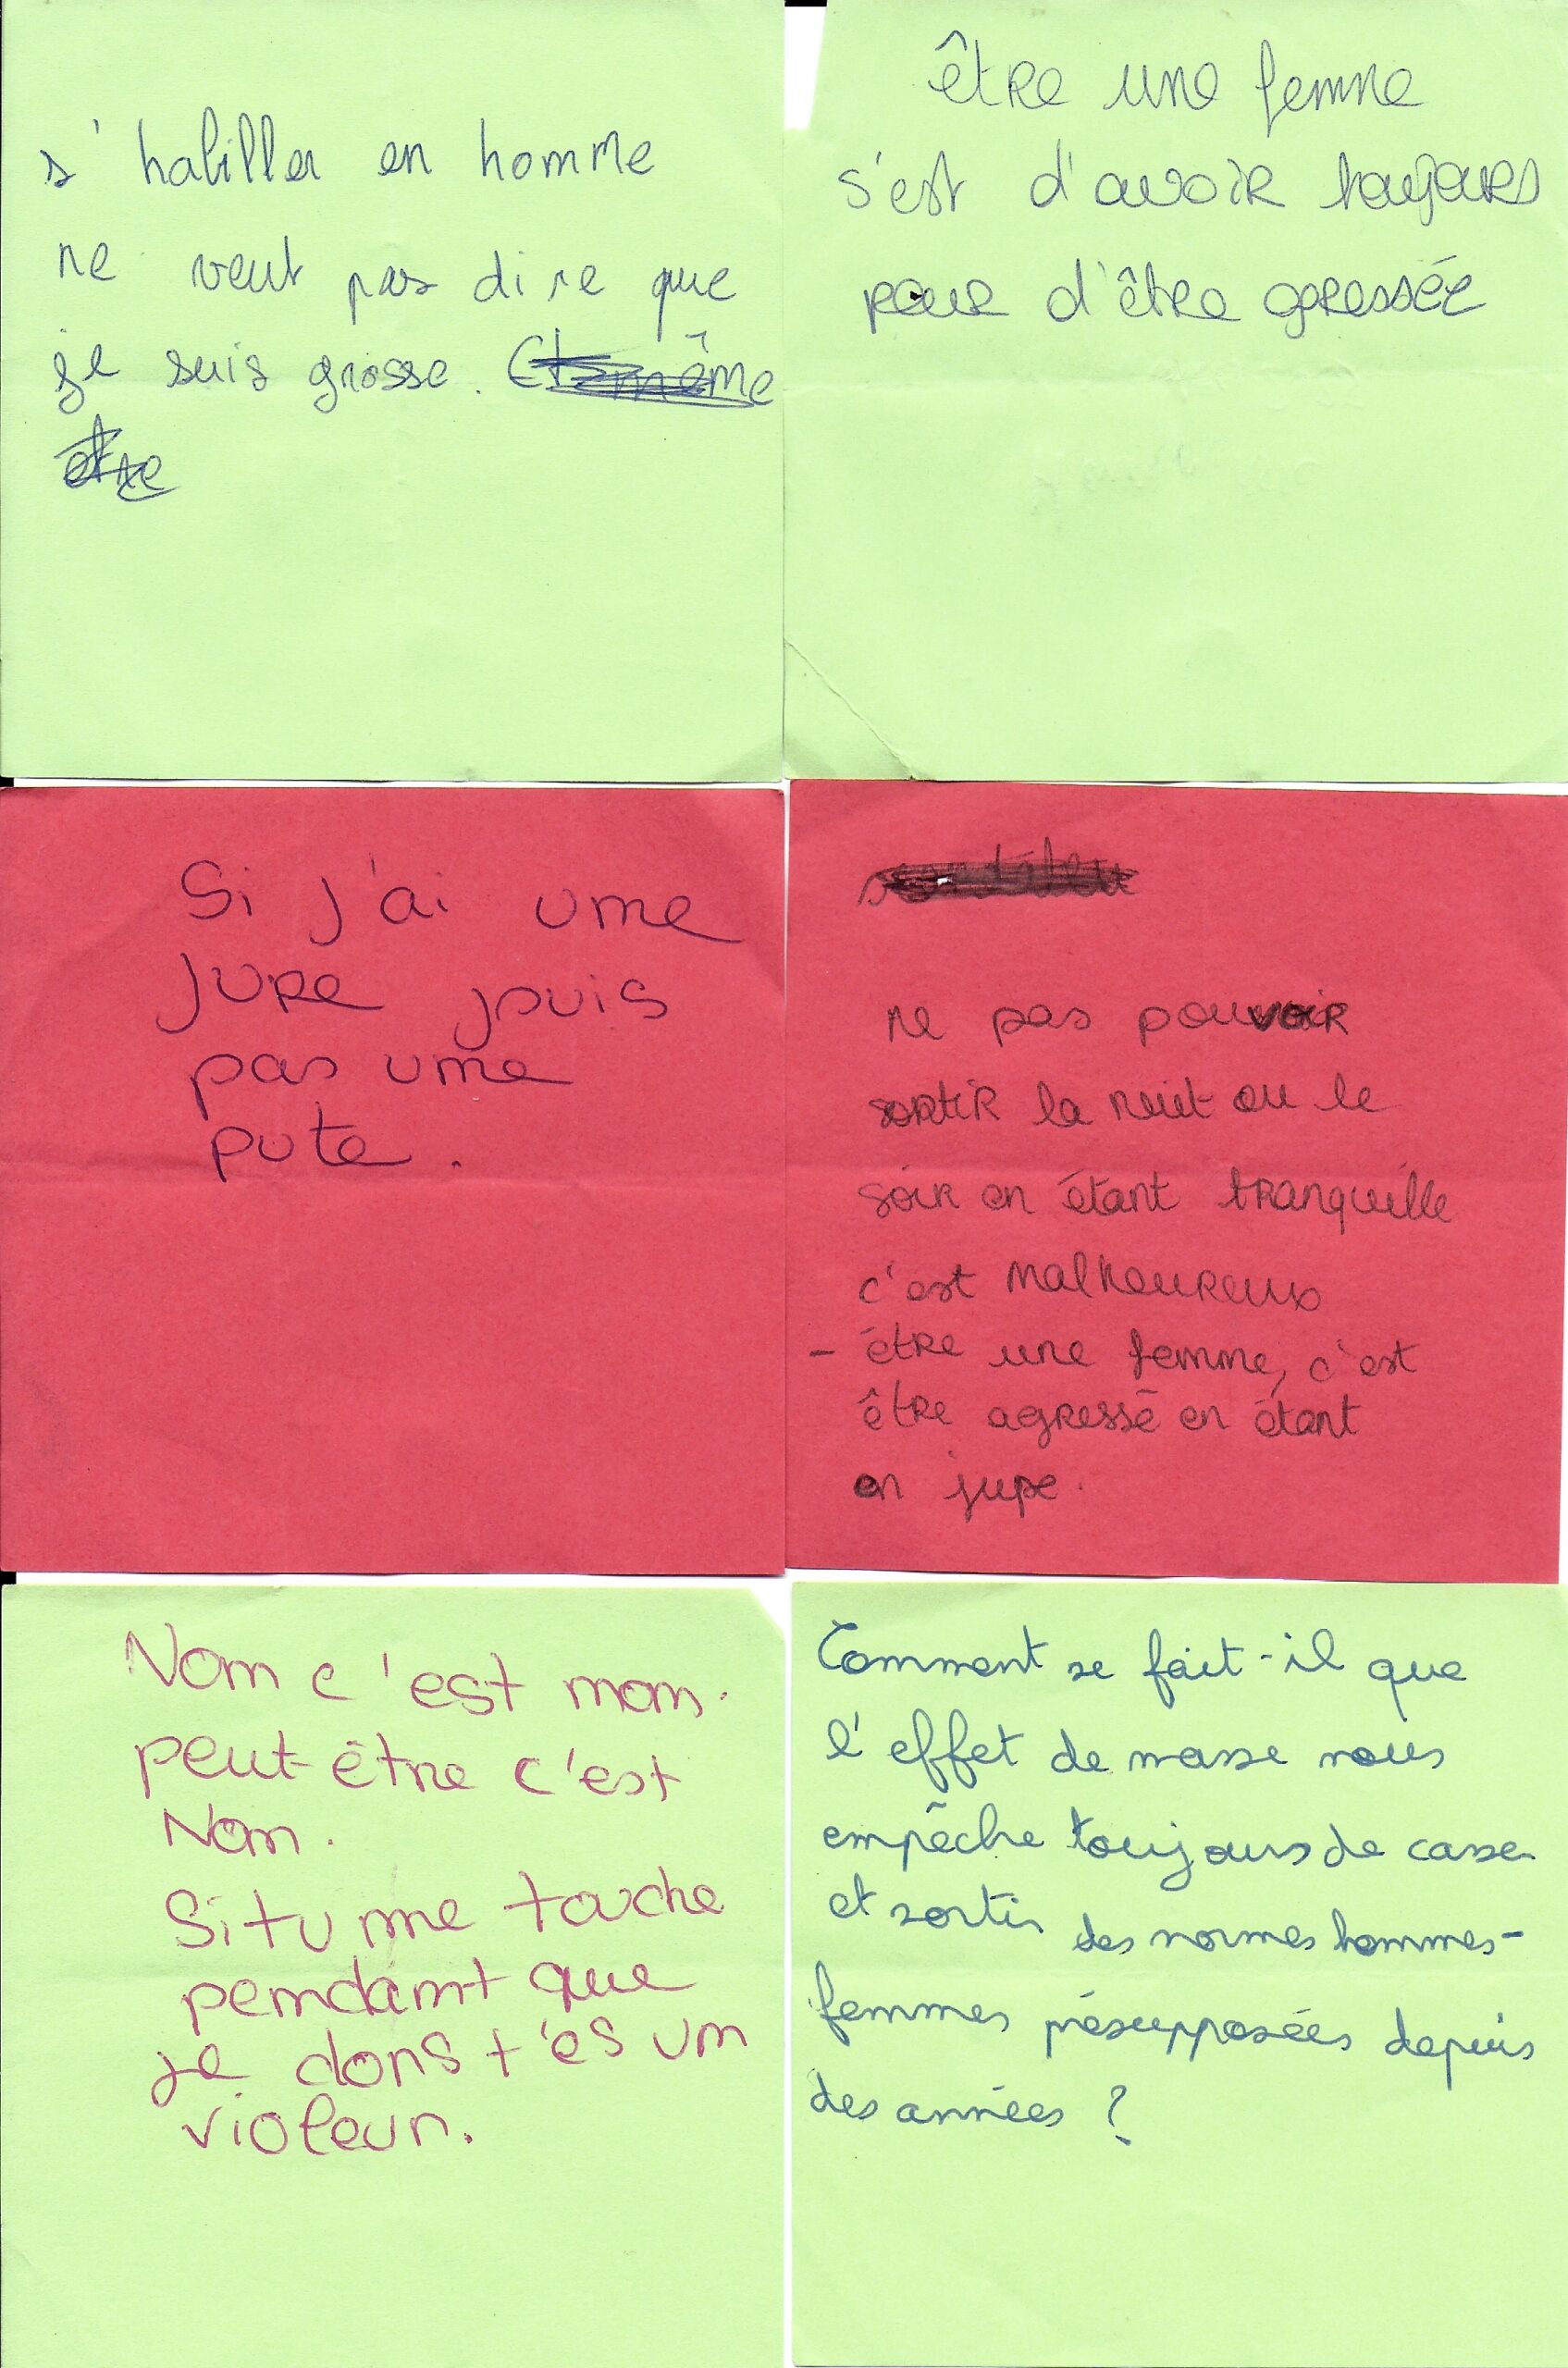 s'habiller en homme
ne veut pas dire que
je suis grosse. Et même
être
être une femme
s'est d'avoir toujours
peur d'être agressée
Si j'ai une
jupe jsuis
pas une
pute.
ne pas pouvoir
sortir la nuit ou le
soir en étant tranquille
c'est malheureux
- être une femme, c'est
être agressé en étant
en jupe.
Non c'est non.
peut-être c'est
Non.
Si tu me touche
pendant que
je dors t'es un
violeur.
Comment se fait-il que
l'effet de masse nous
empêche toujours de casser
et sortir des normes hommes-
femmes présupposées depuis
des années ?